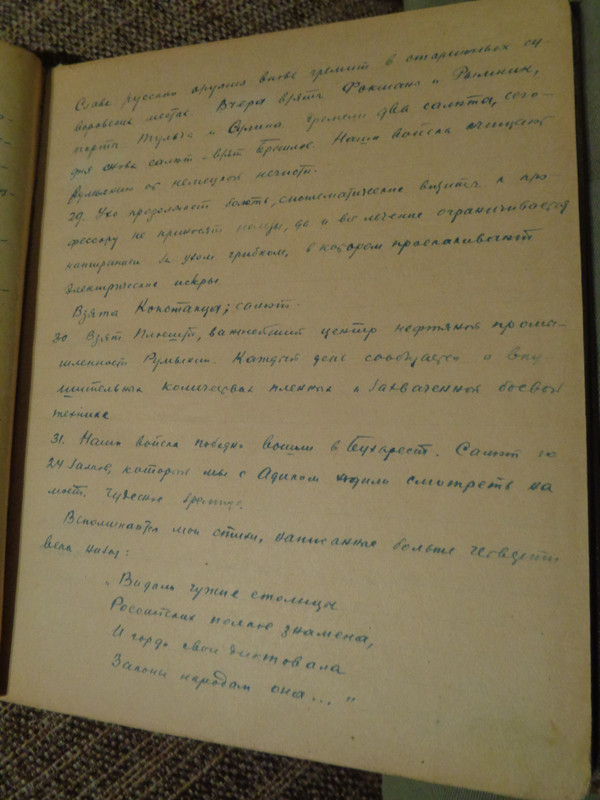 Слава русского оружия вновь гремит в старинных су-
воровских местах. Вчера взяты Фокшаны и Рымник,
порты Тульча и Сулина. Гремели два салюта, сего-
дня снова салют - взят Браилов. Наши войска очищают
Румынию от немецкой нечисти.
29. Ухо продолжает болеть, систематические визиты к про-
фессору не приносят пользы, да и все лечение ограничивается
за ухом грибком, в котором проскакивают
электрические искры
Взята Констанца; салют.
30 Взят Плоешти, важнейший центр нефтяной промы-
шленности Румынии. Каждый день сообщается о вну
шительных количествах пленных и захваченной боевой
технике
31. Наши войска победно вошли в Бухарест. Салют из
24 залпов, который мы с Адиком ходили смотреть на
мост. Чудесное зрелище.
Вспоминаются мои стихи, написанные больше четверти
века назад:
„Видали чужие столицы
Российских полков знамена,
И гордо свои диктовала
Законы народам она..."